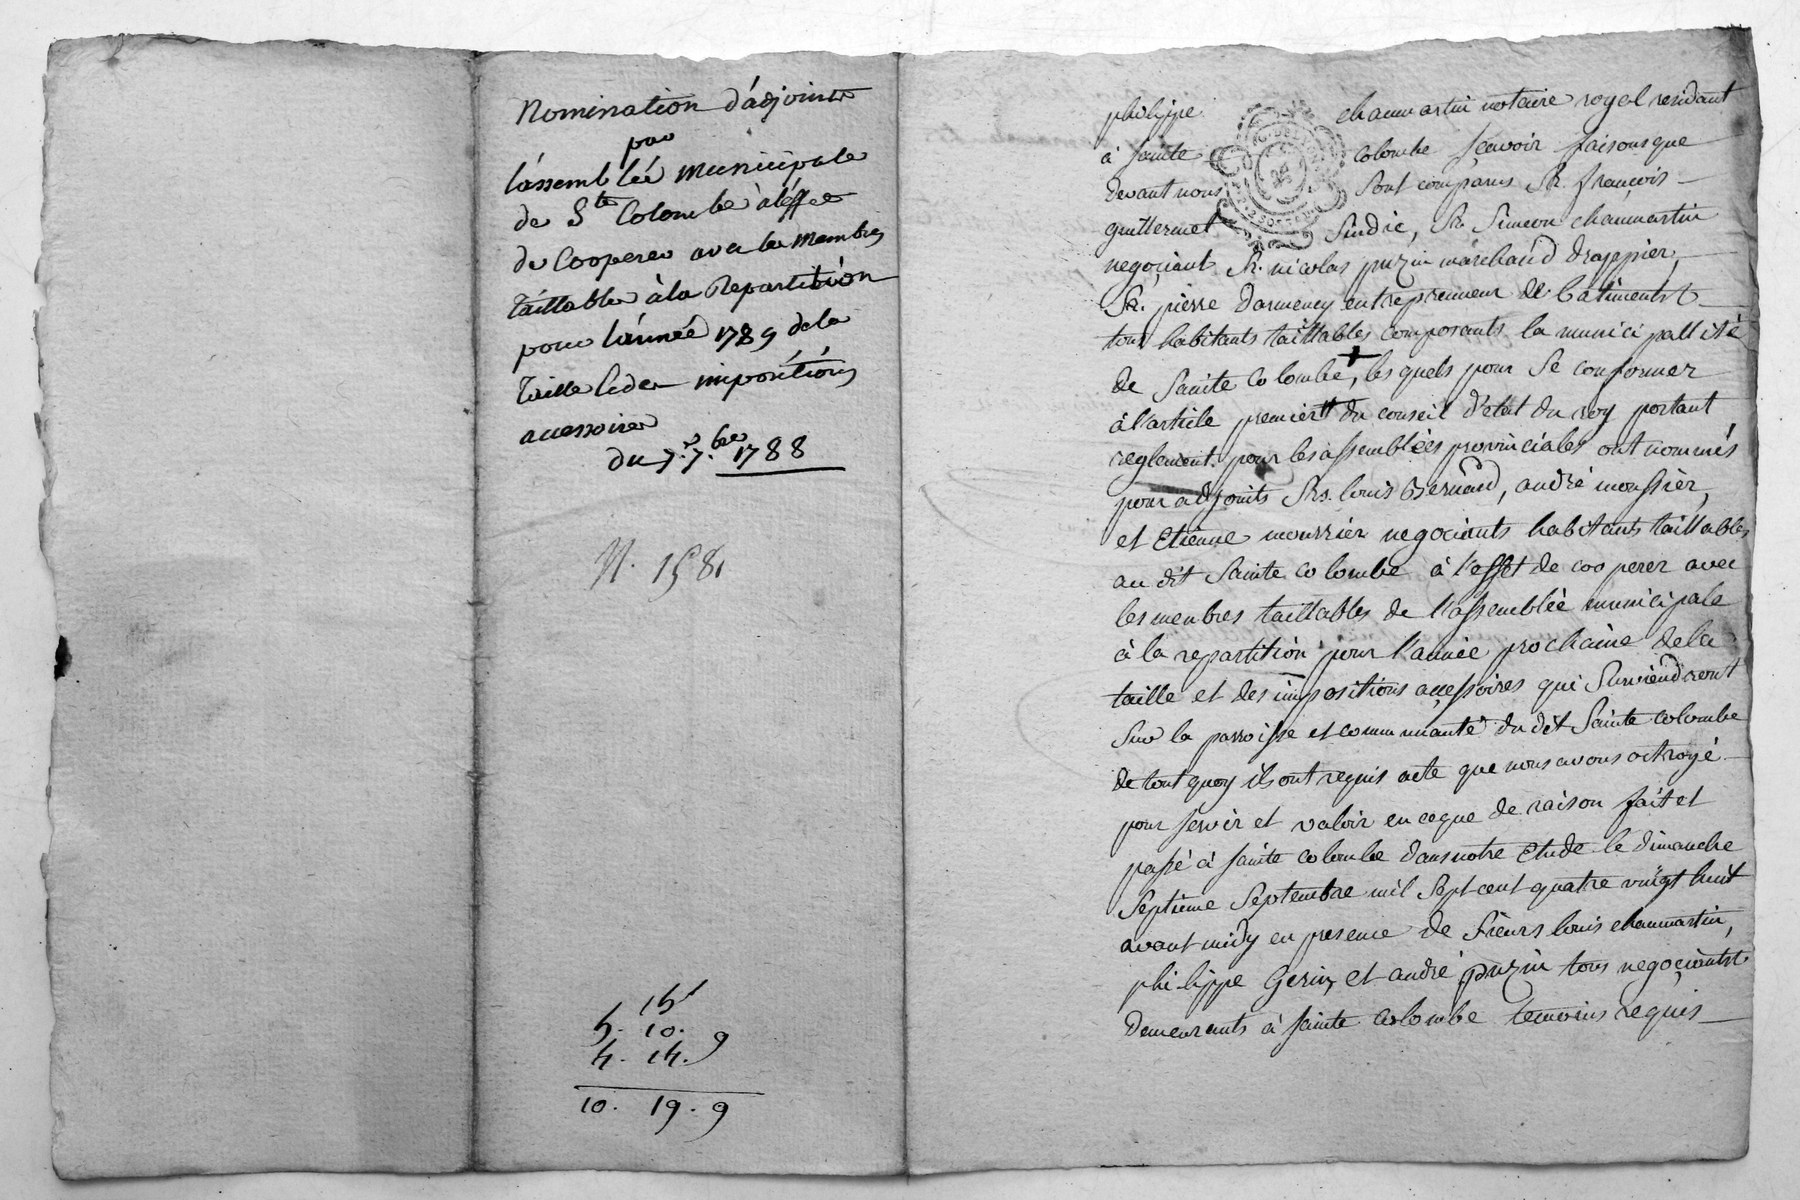 Nomination d'adjoints
par
l'assemblée Municipale
de Ste Colombe à leffet
de Cooperer avec les Membres
taillables à la Repartition
pour l'année 1789 de la
taille & des impositions
accessoires
du 7. 7.bre 1788
N. 158
15
5. 10. 9
4. 14. 9
10. 19. 9
philippe chaumartin notaire royel residant
à sainte colombe sçavoir faisons que
devant nous sont comparus Sr. françois
guillermet Sindic, Sr. Simeon chaumartin
negoçiant Sr. nicolas puzin marchand drappier,
Sr. pierre Darmency entreprenneur de batiments
tous habitants taillables composants la municipallité
de Sainte colombe, les quels pour se conformer
à l'article premier du conseil d'etat du roy portant
reglement pour les assemblées provinciales ont nommés
pour adjoints Srs. louis Bernard, andré moussier,
et Etienne mourrier negociants habitants taillables
au dit Sainte colombe à l'effet de cooperer avec
les menbres taillables de l'assemblée municipale
à la repartition pour l'année prochaine de la
taille et des impositions açessoires qui surviendront
sur la parroisse et communauté du dit Sainte colombe
de tout quoy ils ont requis acte que nous avons octroyé
pour servir et valoir en ce que de raison fait et
passé à sainte colombe dans notre Etude le dimanche
septième septembre mil sept cent quatre vingt huit
avant midy en presence de sieurs louis chaumartin,
philippe Gerin, et andré puzin tous negoçiants
demeurants à sainte colombe temoins requis